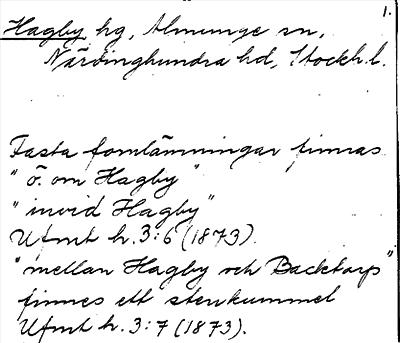 1.
Hagby hg, Almunge sn,
Närdinghundra hd, Stockh. l.
Fasta fornlämningar finnas
" ö. om Hagby "
" invid Hagby "
Ufmt h. 3:6 (1873).
" mellan Hagby och Backtorp "
finnes ett stenkummel
Ufmt h. 3:7 (1873).